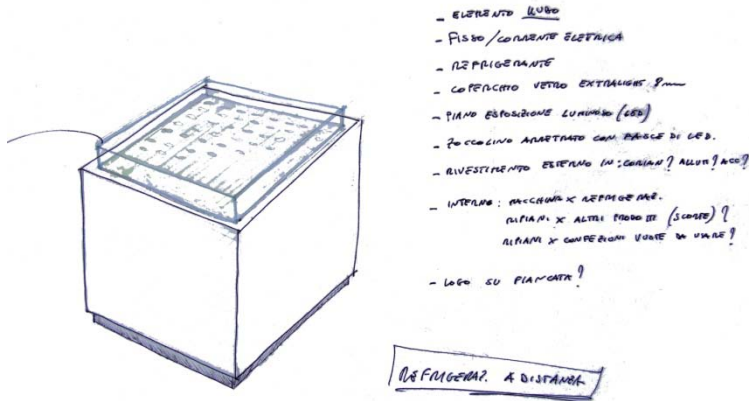 - ELEMENTO CUBO
- FISSO/CORRENTE ELETTRICA
- REFRIGERANTE
- COPERCHIO VETRO EXTRALIGHT 8mm
- PIANO ESPOSIZIONE LUMINOSO (LED)
- ZOCCOLINO ARRETRATO CON FASCE DI LED.
- RIVESTIMENTO ESTERNO IN: CORIAN? ALLUM? ACC?
- INTERNO: MACCHINA X REFRIGERAZ.
RIPIANI X ALTRI PRODOTTI (SCORTE)?
RIPIANI X CONFEZIONI VUOTE DA USARE?
- LOGO SU FIANCATA?
REFRIGERAZ. A DISTANZA